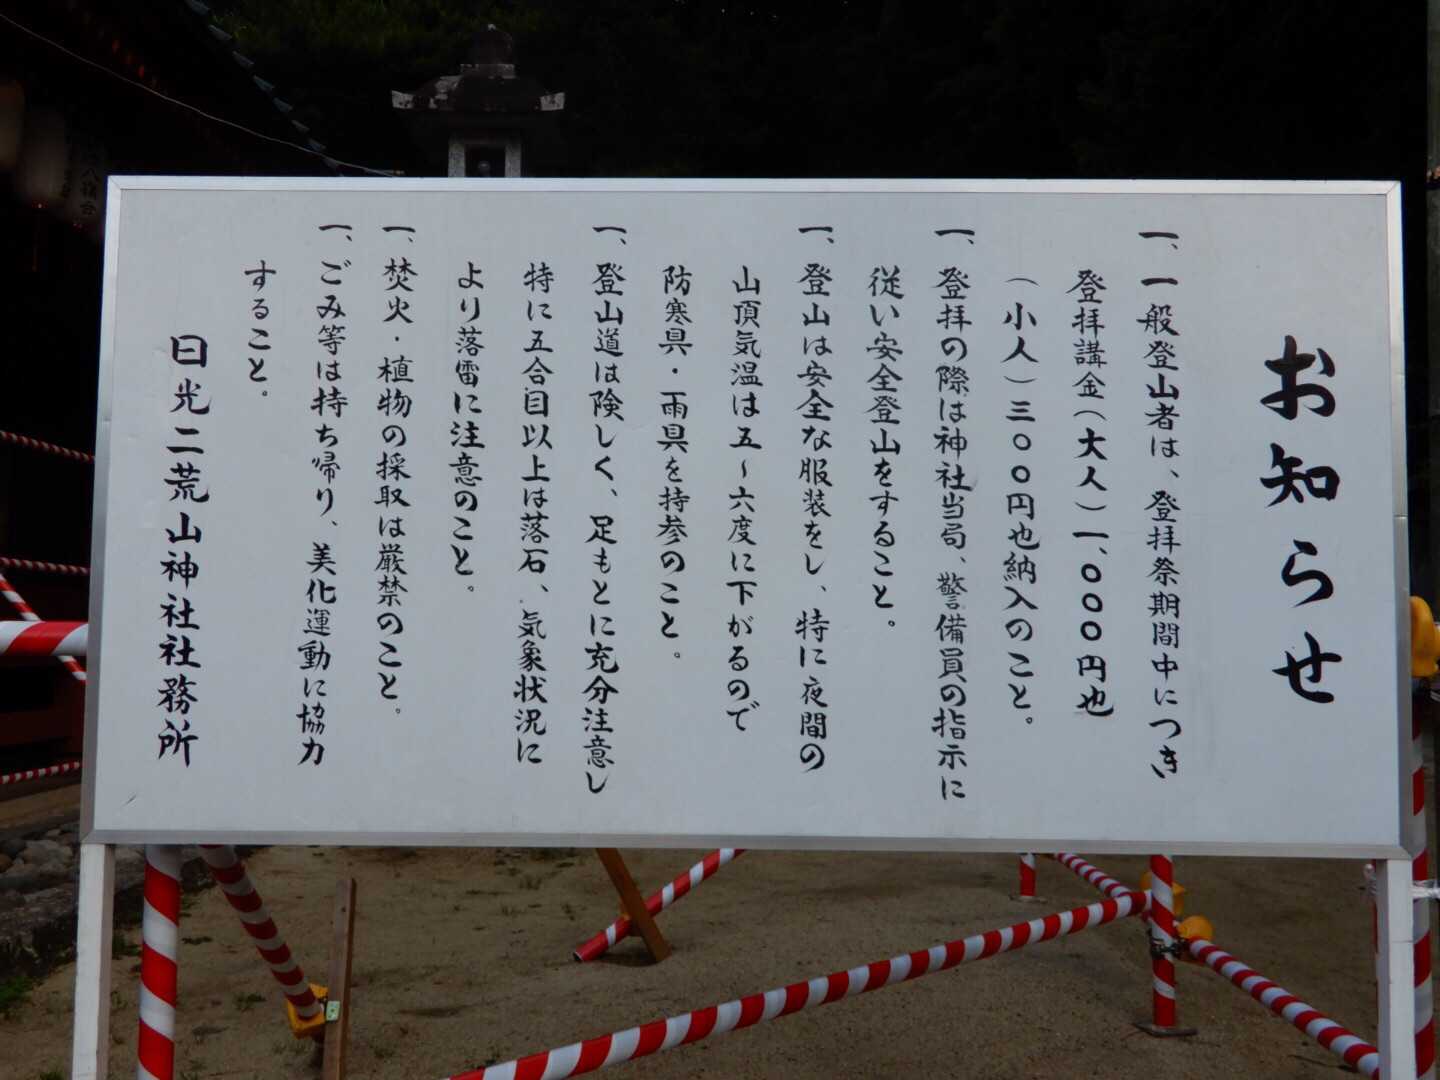 お知らせ
一、一般登山者は、登拝祭期間中につき
登拝講金(大人)一、〇〇〇円也
(小人)三〇〇円也納入のこと。
一、登拝の際は神社当局、警備員の指示に
従い安全登山をすること。
一、登山は安全な服装をし、特に夜間の
山頂気温は五〜六度に下がるので
防寒具・雨具を持参のこと。
一、登山道は険しく、足もとに充分注意し
特に五合目以上は落石、気象状況に
より落雷に注意のこと。
一、焚火・植物の採取は厳禁のこと。
一、ごみ等は持ち帰り、美化運動に協力
すること。
日光二荒山神社社務所